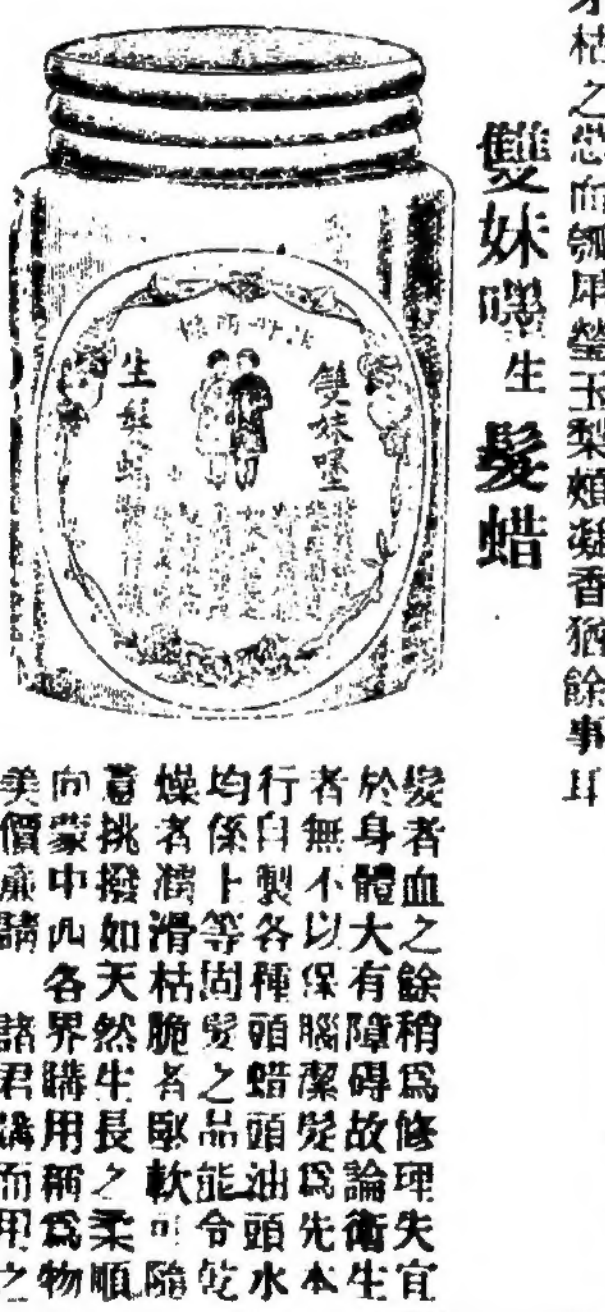 枯之恙而領犀瑩玉梨頰凝香猶餘事耳
雙妹嚜生髮蜡
雙妹嚜
生髮蜡
髮者血之餘稍爲修理失宜
於身體大有障碍故論衛生
者無不以保腦潔髮爲先本
行自製各種頭蜡頭油頭水
均係上等固髮之品能令乾
燥者潤滑枯脆者堅軟可隨
意挑撥如天然生長之柔順
向蒙中西各界購用稱爲物
美價廉請 諸君購而用之